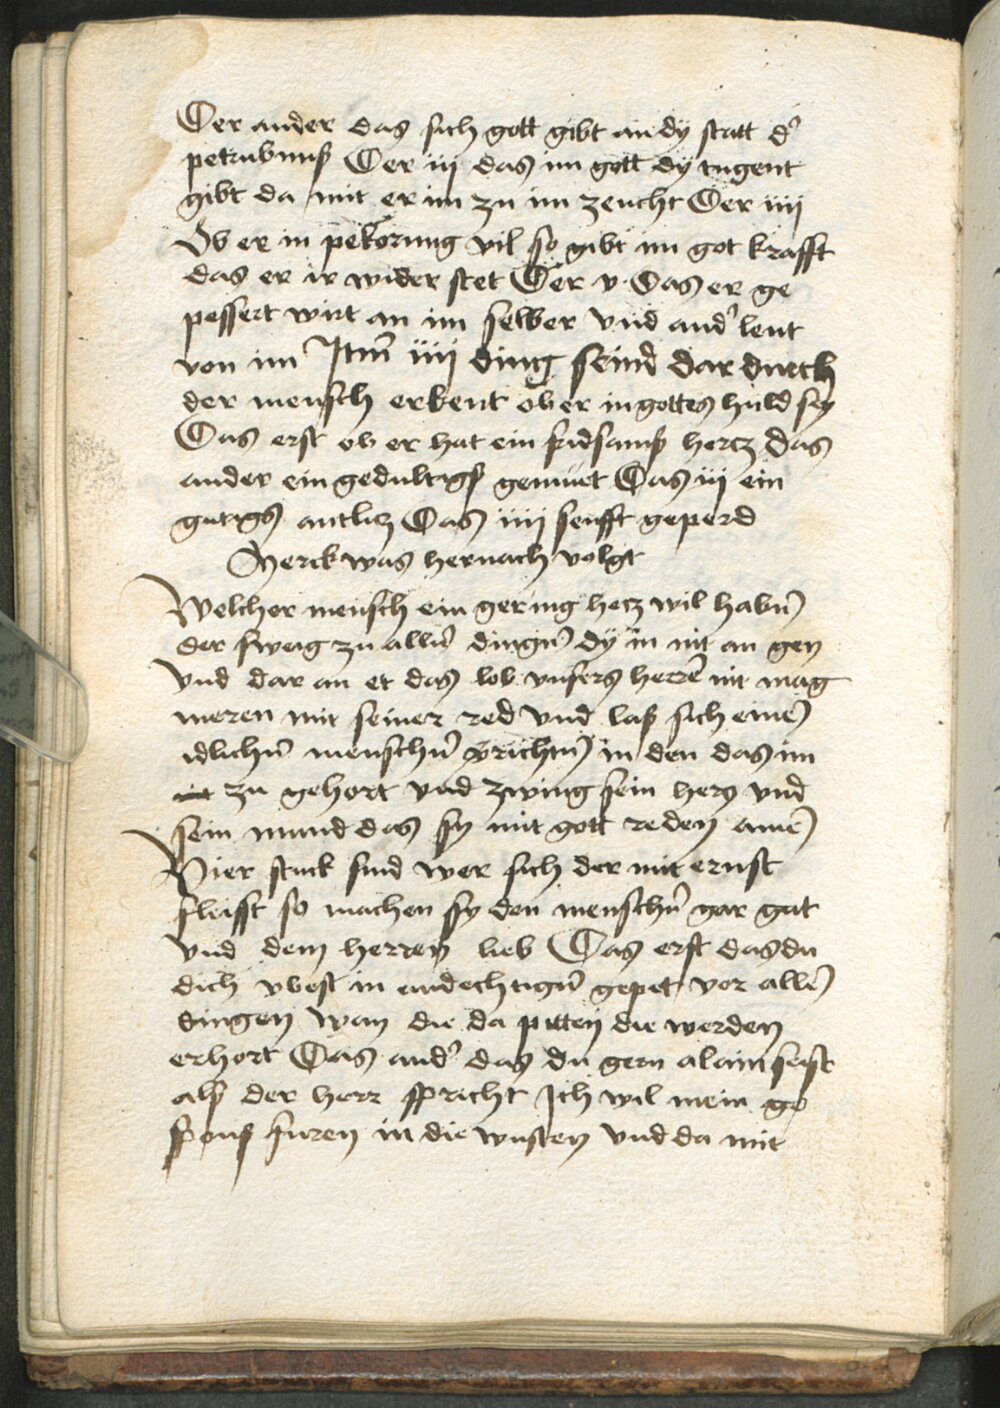 Der ander das sich gott gibt an dy statt d'
petrubnuß Der iii das im gott dy tugent
gibt da mit er im zu im zeucht Der iiii
Ob er in pekorung vil so gibt im got krafft
das er ir wider stet Der v Das er ge
pessert wirt an im selber vnd and' leut
von im Itm̄ iiii ding seind dar durch
der mensch erkent ob er in gottes huld sey
Das erst ob er hat ein fridsamß hertz das
ander ein gedultigß gemuet Das iii ein
gutigß antlitz Das iiii senfft geperd
Merck was hernach volgt
Welcher mensch ein gering hetz wil habn̄
der sweig zu alln̄ dingn̄ dy in nit an gen
Vnd dar an er das lob vnsers herrē nit mag
meren mit seiner red Vnd laß sich einē
idlichn̄ menschn̄ v'richtn̄ in den das im
zu gehort vnd zwing sein herz vnd
sein mund das sy mit gott reden amē
Vier stuck sind wer sich der mit ernst
fleisst so machen sy den menschn̄ gar gut
Vnd dem herren lieb Das erst das du
dich vbest in andechtign̄ gepet vor alln̄
dingen Wan die da pitten die werden
erhort Das and' das du gern alain seist
alß der herr spricht Ich wil mein ge
sponß furen in die wusten Vnd da mit